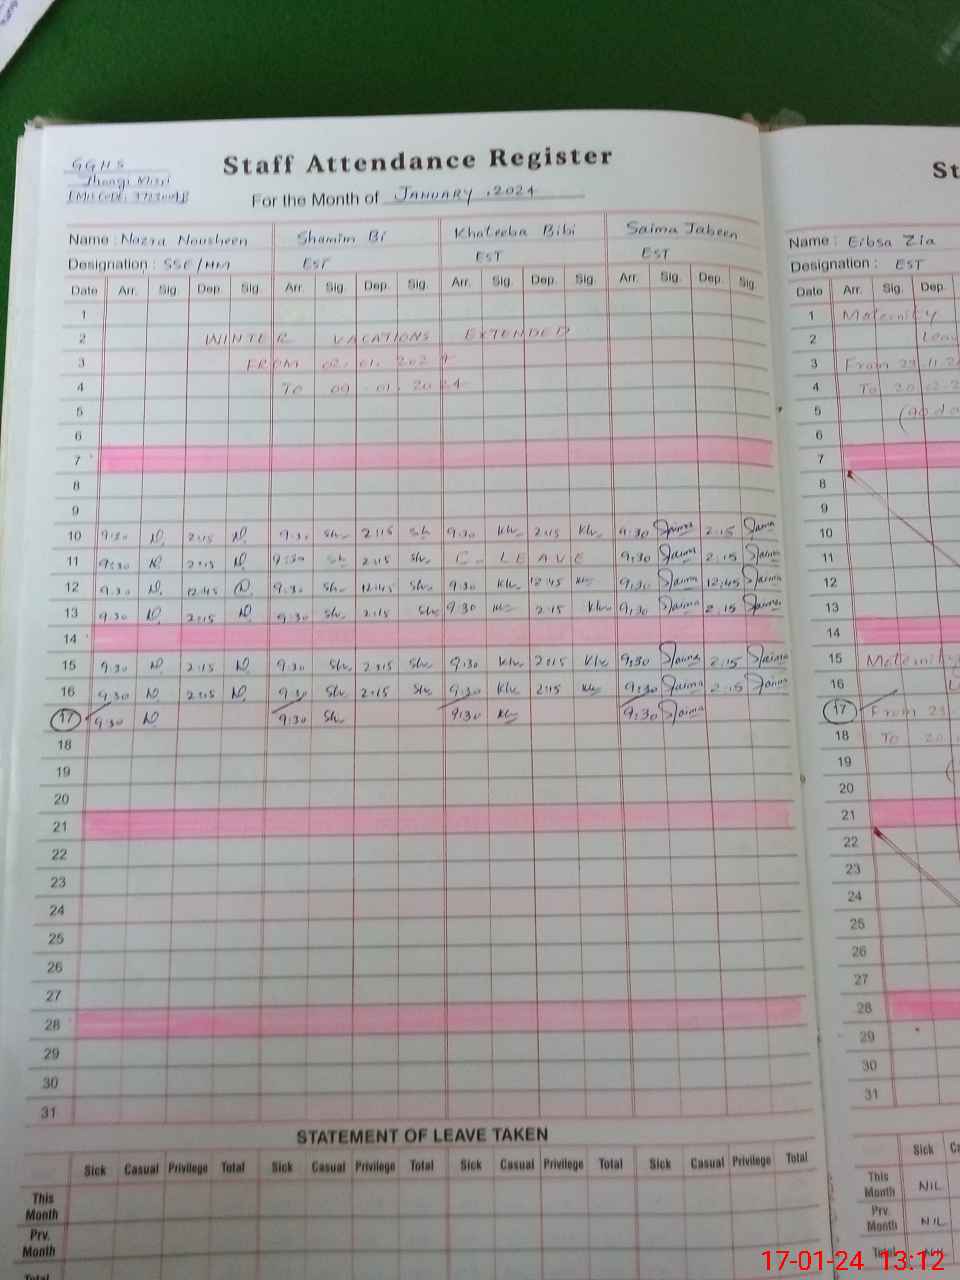 GGHS
Staff Attendance Register
For the Month of JANUARY, 2024
Name : Nazra Nousheen Shamim Bi Khateeba Bibi Saima Jabeen
Designation : SSE/HM EST EST EST
Date Arr. Sig. Dep. Sig. Arr. Sig. Dep. Sig. Arr. Sig. Dep. Sig. Arr. Sig. Dep. Sig.
1
2 WINTER VACATIONS EXTENDED
3 FROM 02.01.2024
4 TO 09.01.2024
5
6
7
8
9
10 9:30 N. 2:15 N. 9:30 Sh. 2:15 Sh. 9:30 Kh. 2:15 Kh. 9:30 Saima 2:15 Saima
11 9:30 N. 2:15 N. 9:30 Sh. 2:15 Sh. C. LEAVE 9:30 Saima 2:15 Saima
12 9:30 N. 12:45 N. 9:30 Sh. 12:45 Sh. 9:30 Kh. 12:45 Kh. 9:30 Saima 12:45 Saima
13 9:30 N. 2:15 N. 9:30 Sh. 2:15 Sh. 9:30 Kh. 2:15 Kh. 9:30 Saima 2:15 Saima
14
15 9:30 N. 2:15 N. 9:30 Sh. 2:15 Sh. 9:30 Kh. 2:15 Kh. 9:30 Saima 2:15 Saima
16 9:30 N. 2:15 N. 9:30 Sh. 2:15 Sh. 9:30 Kh. 2:15 Kh. 9:30 Saima 2:15 Saima
17 9:30 N. 9:30 Sh. 9:30 Kh. 9:30 Saima
18
19
20
21
22
23
24
25
26
27
28
29
30
31
STATEMENT OF LEAVE TAKEN
Sick Casual Privilege Total Sick Casual Privilege Total Sick Casual Privilege Total Sick Casual Privilege Total
This Month
Prv. Month
Total
St
Name : Eibsa Zia
Designation : EST
Date Arr. Sig. Dep.
1 Maternity
2
3 From
4 To
5
6
7
8
9
10
11
12
13
14
15 Maternity
16
17 From
18 To
19
20
21
22
23
24
25
26
27
28
29
30
31
Sick
This Month NIL
Prv. Month NIL
Total
17-01-24 13:12